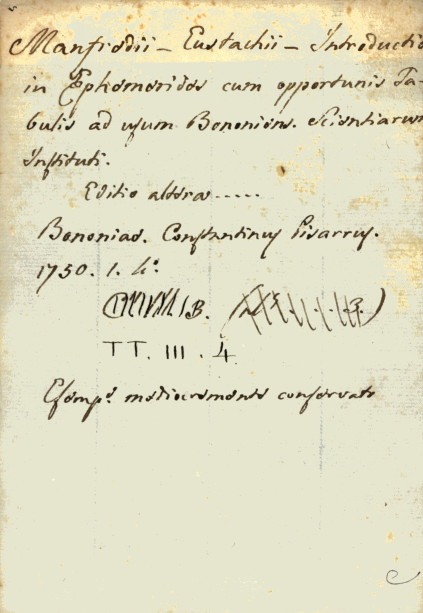 Manfredii - Eustachii - Introductio
in Ephemerides cum opportunis Ta-
bulis ad usum Bononiens. Scientiarum
Instituti.
Editio altera.....
Bononiae. Constantinus Pisarrus.
1750. 1. 4°.
B.
TT. III. 4.
Esemp.e mediocremente conservato